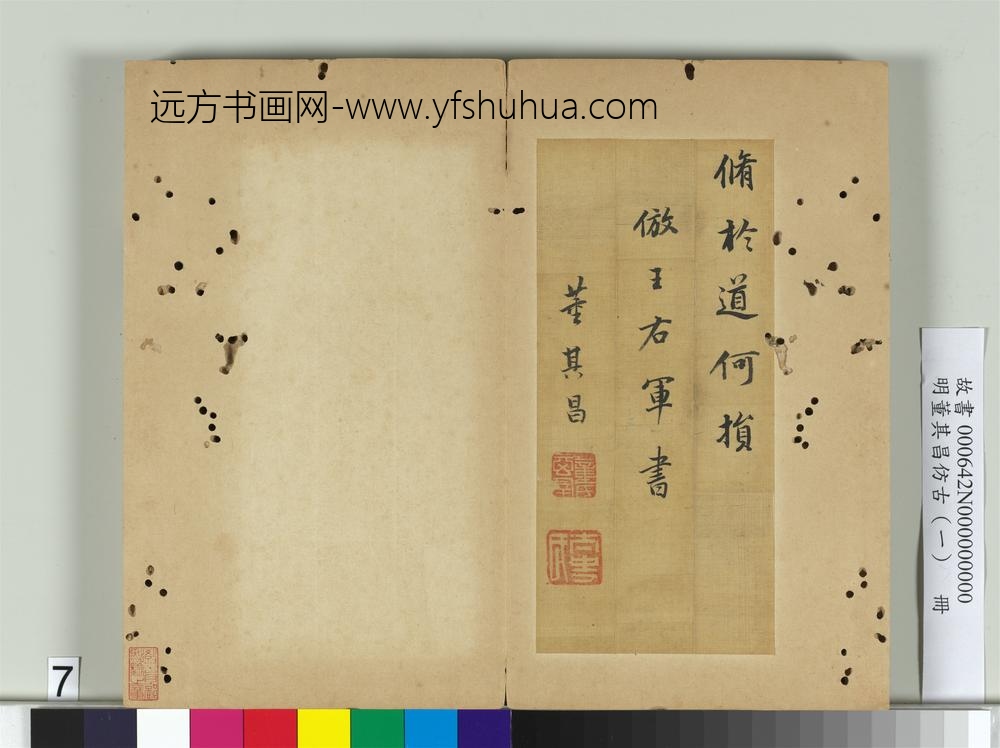 远方书画网-www.yfshuhua.com
脩於道何損
倣王右軍書
董其昌
故書 000642N000000000
明董其昌仿古(一) 冊
7